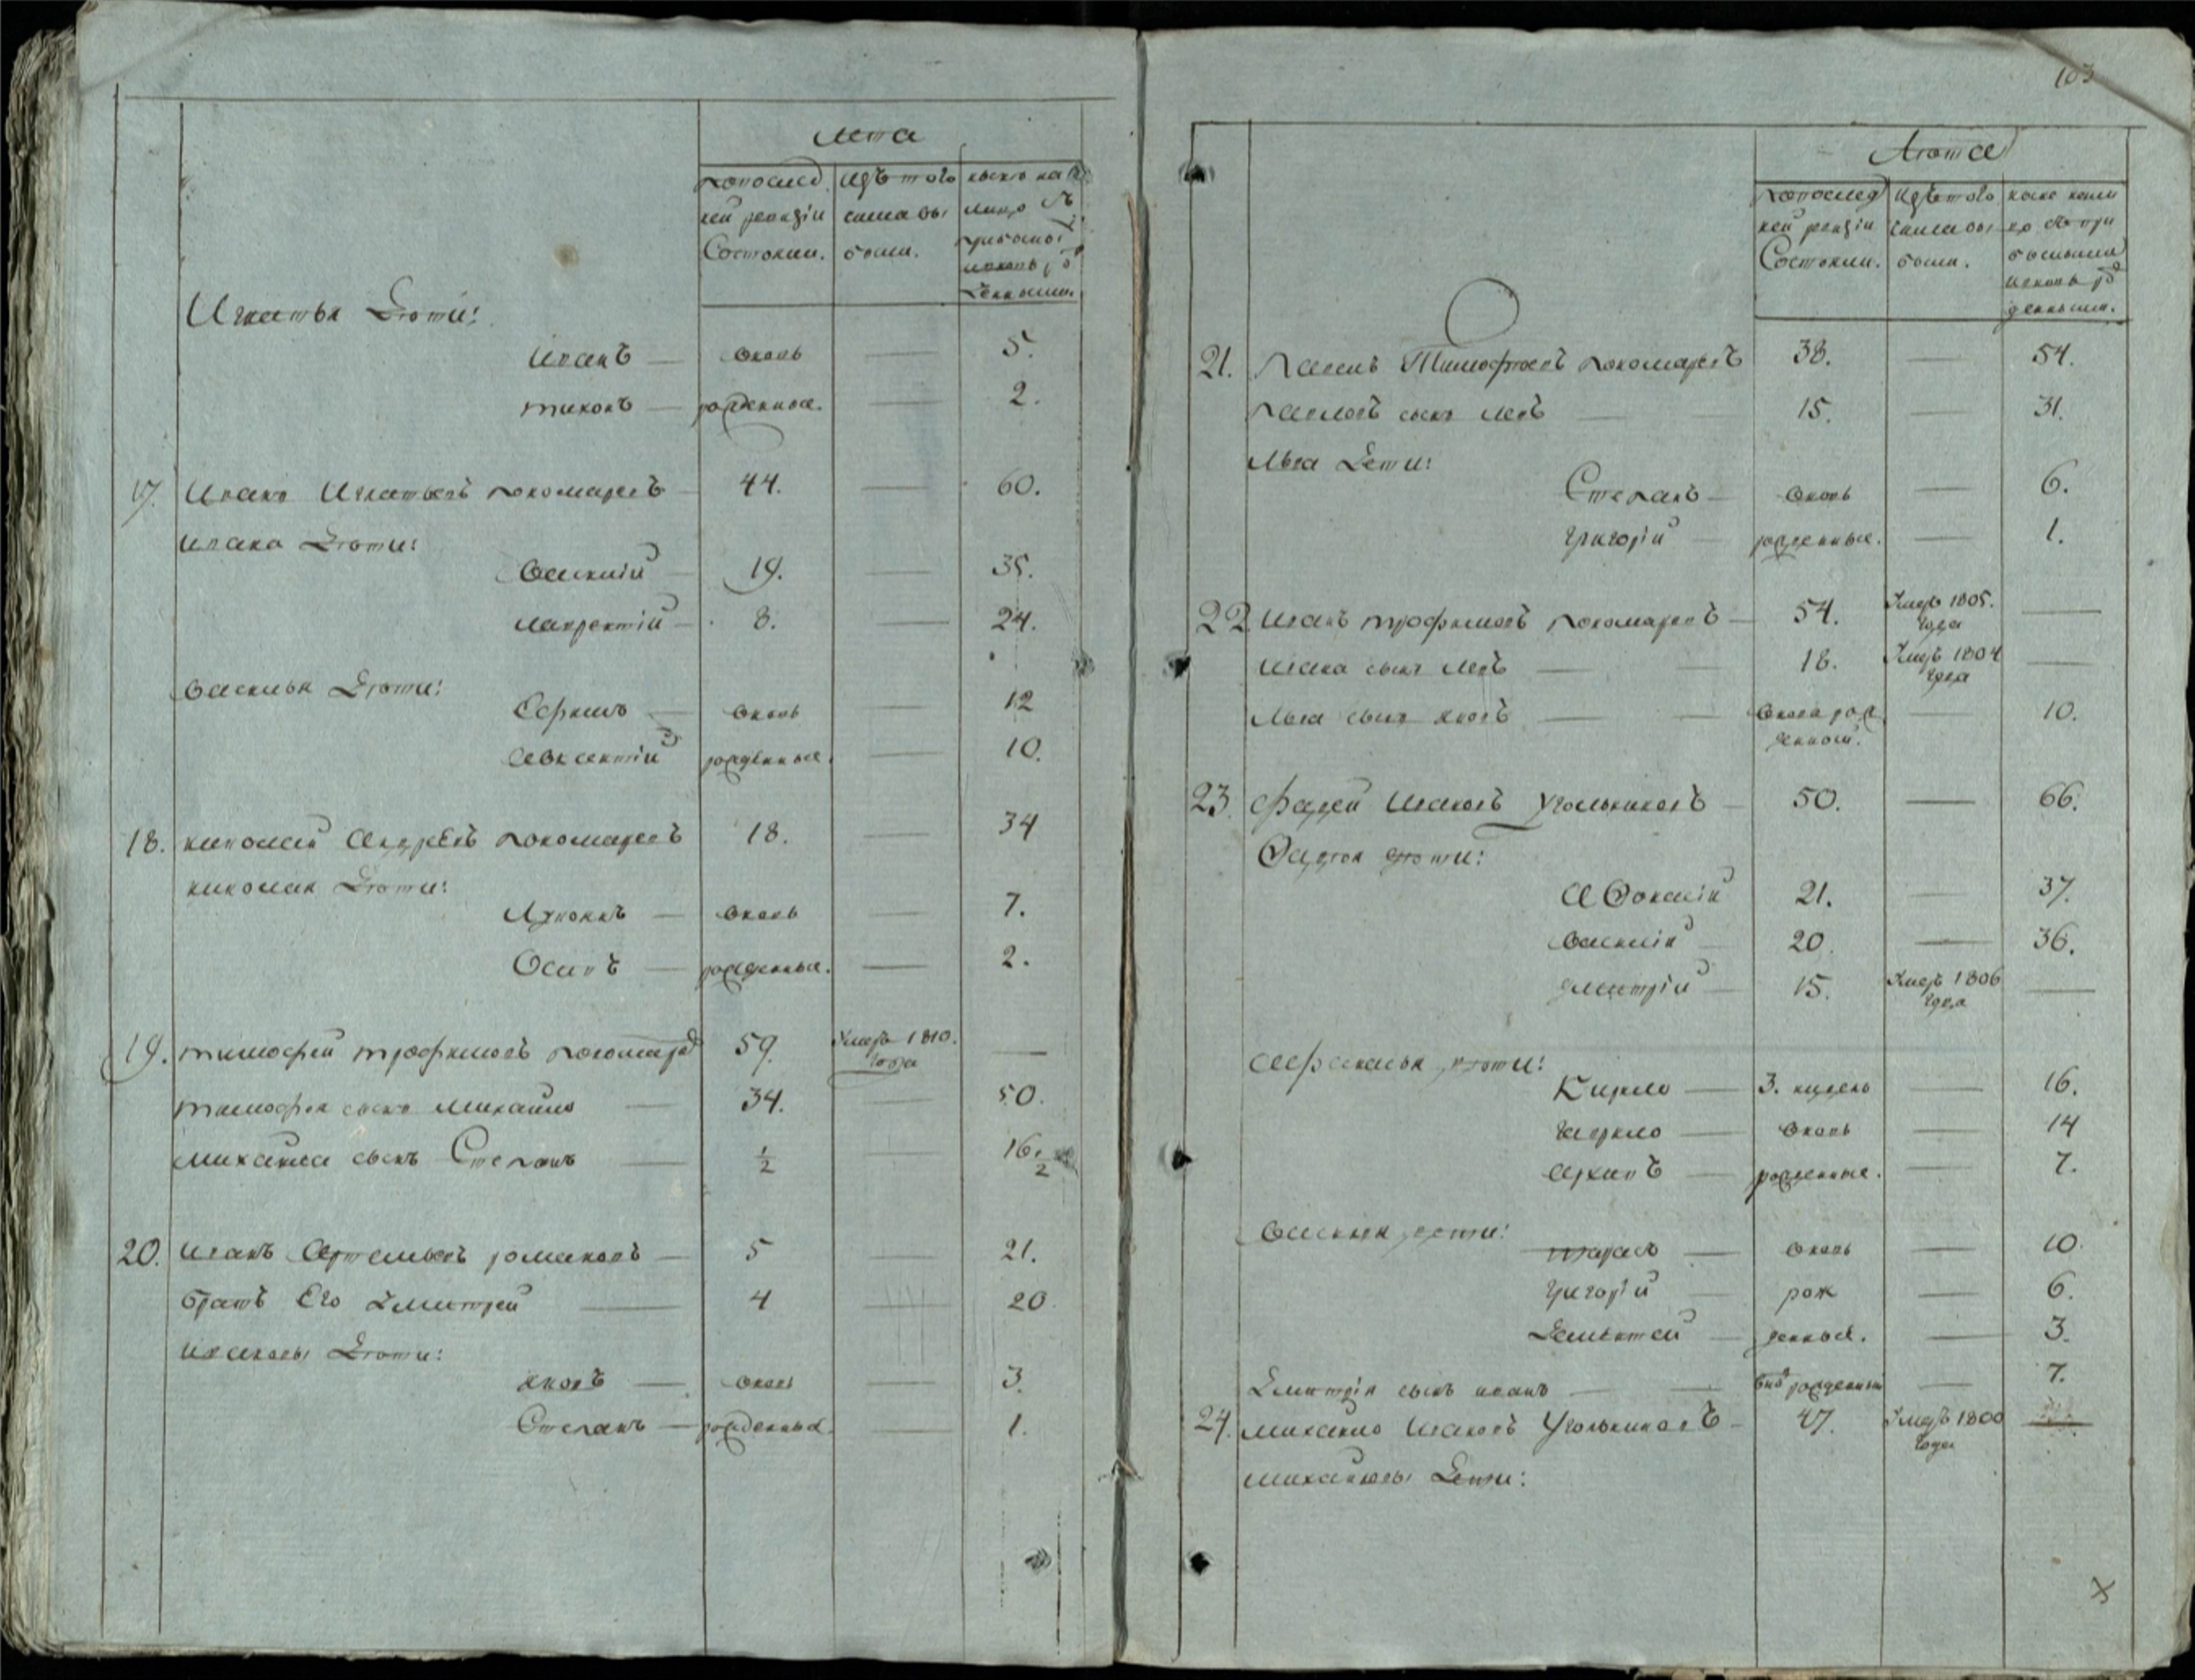 Лета
по послед
ней ревизіи
Состояли.
изъ того
числа вы
было.
ныне на
лицо съ
прибылы
и вновь ро
жденными.
Игнатья Дѣти:
Иванъ — вновь — 5.
тихонъ — рожденные. — 2.
17. Иванъ Игнатьевъ пономаревъ — 44. — 60.
Ивана Дѣти:
Василий — 19. — 35.
лаврентій — 8. — 24.
василья Дѣти:
Ефимъ — вновь — 12
авксентій — рожденные. — 10.
18. николай Андреевъ пономаревъ 18. — 34
николая Дѣти:
— вновь — 7.
Осипъ — рожденные. — 2.
19. тимофей трофимовъ пономарев 59. Умеръ 1810. —
года
тимофея сынъ михайло — 34. — 50.
михайла сынъ Степанъ — 1/2 — 16. 1/2
20. иванъ Артемьевъ романовъ — 5 — 21.
братъ Его Дмитрей — 4 — 20
ивановы Дѣти:
яковъ — вновь — 3.
Степанъ — рожденные — 1.
103
Лѣта
по послед
ней ревизіи
Состояли.
изъ того
числа вы
было.
ныне нали
цо съ при
былыми
и вновь ро
жденными.
21. Павелъ Тимофеевъ пономаревъ 38. — 54.
павловъ сынъ левъ — 15. — 31.
Льва Дети:
Степанъ — вновь — 6.
григорій — рожденные. — 1.
22. иванъ трофимовъ пономаревъ — 54. Умеръ 1805. —
года
ивана сынъ левъ — 18. Умеръ 1804 —
года
льва сынъ яковъ — вновь рож — 10.
денной.
23. фадей Ивановъ Угольниковъ — 50. — 66.
Фадея дѣти:
Афонасій 21. — 37.
василій — 20. — 36.
дмитрій — 15. Умеръ 1806 —
года
афанасья дѣти:
Кирило — 3. недель — 16.
гаврило — вновь — 14
архипъ — рожденные. — 7.
василья дети:
тарасъ — вновь — 10.
григорій — рож — 6.
Дементей — денные. — 3.
Дмитрія сынъ иванъ — рожденный — 7.
24. михайло Ивановъ Угольниковъ — 47. Умеръ 1800 —
года
михайловы Дети: